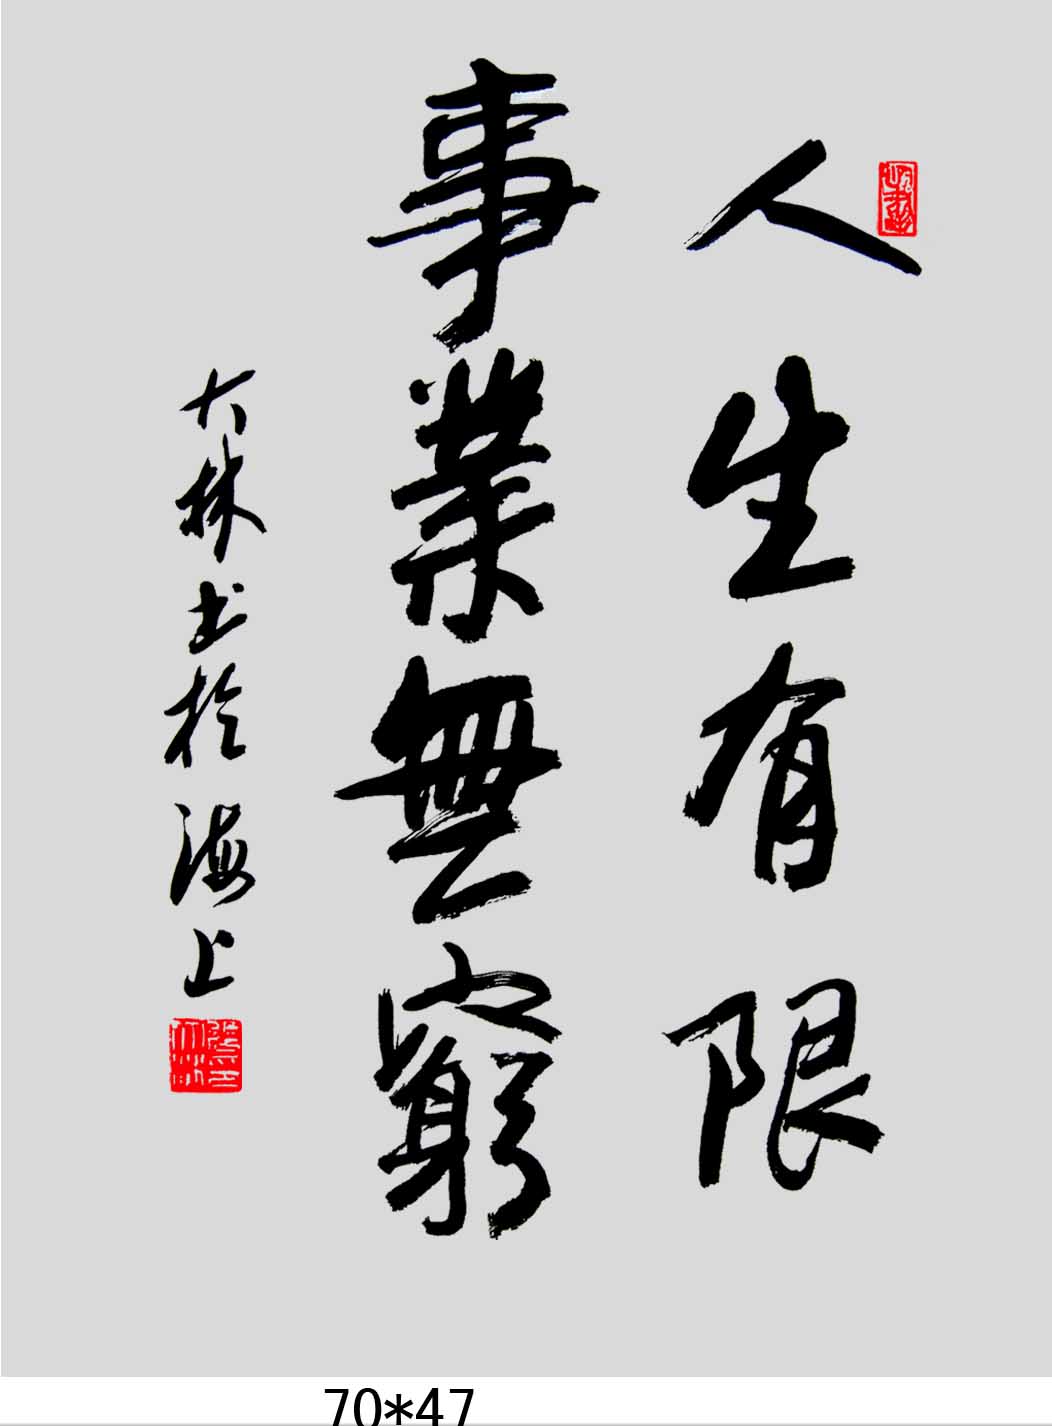 人生有限
事業無窮
大林书於海上
70*47